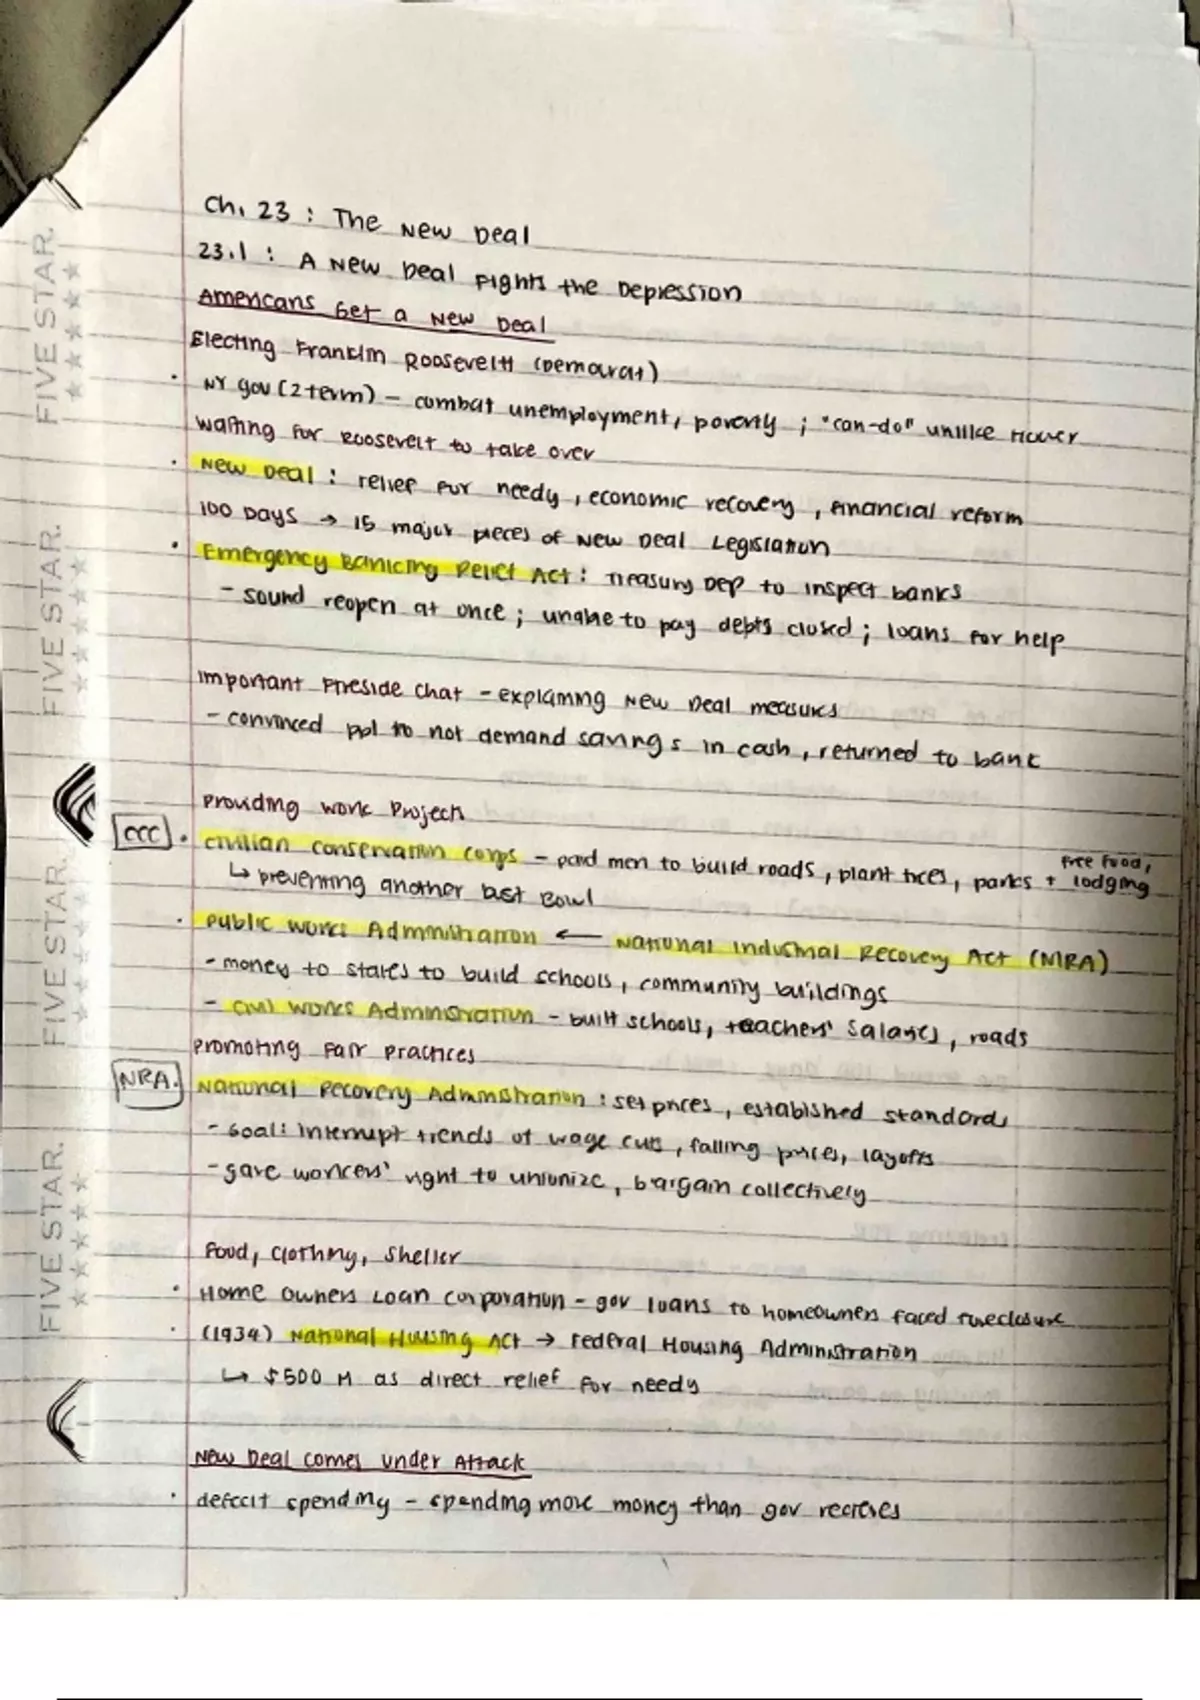 Ch. 23 : The New Deal
23.1 : A New Deal Fights the Depression
Americans Get a New Deal
Electing Franklin Roosevelt (Democrat)
· NY gov (2 term) – combat unemployment, poverty ; "can-do" unlike Hoover
Waiting for Roosevelt to take over
· New Deal : relief for needy, economic recovery, financial reform
100 Days → 15 major pieces of New Deal Legislation
· Emergency Banking Relief Act : Treasury Dep to inspect banks
- sound reopen at once ; unable to pay debts closed ; loans for help
Important Fireside Chat – explaining New Deal measures
- convinced ppl to not demand savings in cash, returned to bank
Providing Work Projects
CCC · Civilian Conservation Corps – paid men to build roads, plant trees, parks + free food, lodging
↳ preventing another Dust Bowl
· Public Works Administration ← National Industrial Recovery Act (NIRA)
- money to states to build schools, community buildings
- Civil Works Administration – built schools, teachers' salaries, roads
Promoting Fair Practices
NRA. National Recovery Administration : set prices, established standards
- Goal: interrupt trends of wage cuts, falling prices, layoffs
- gave workers' right to unionize, bargain collectively
Food, Clothing, Shelter
· Home Owners Loan Corporation – gov loans to homeowners faced foreclosure
· (1934) National Housing Act → Federal Housing Administration
↳ $500 M as direct relief for needy
New Deal Comes Under Attack
· deficit spending – spending more money than gov receives
FIVE STAR.
FIVE STAR.
FIVE STAR.
FIVE STAR.